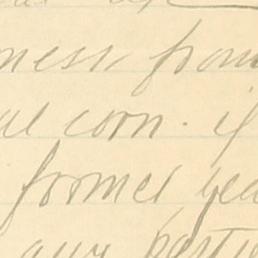 ness from
al corn. if
former yea
any parti